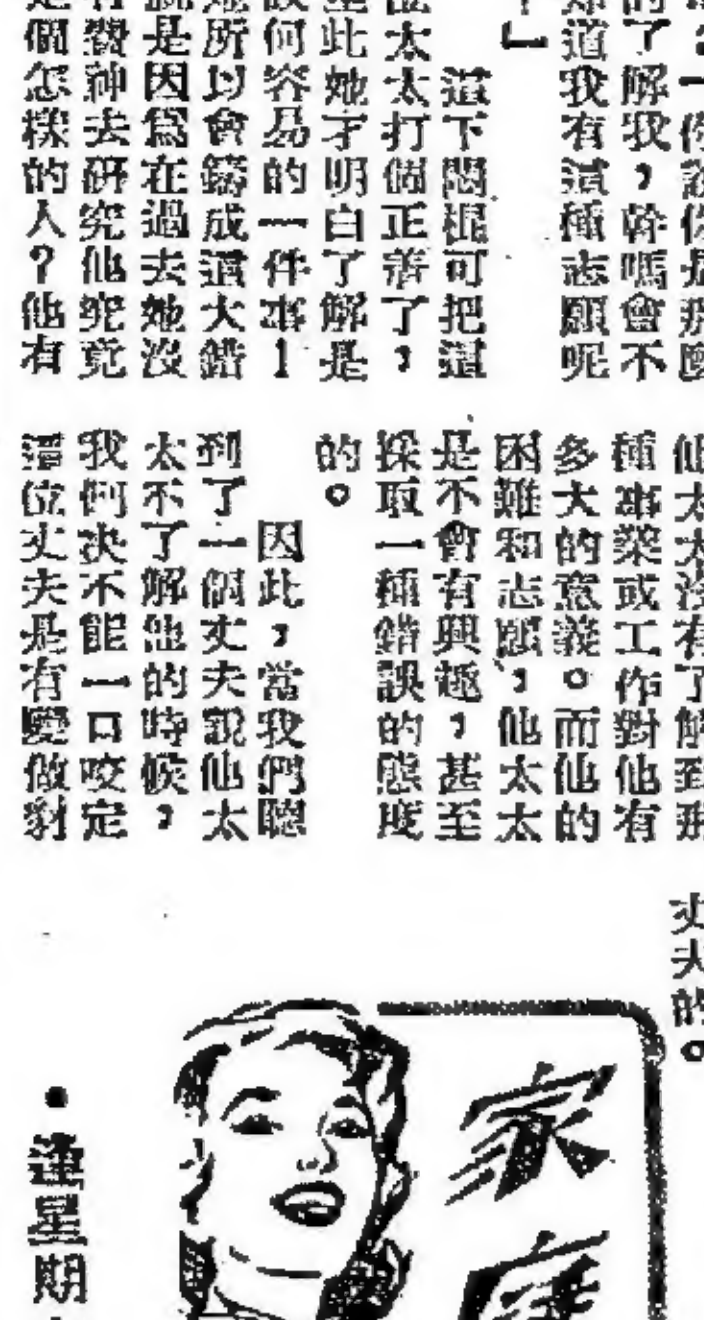 的了解我,幹嗎會不
道我有這種志願呢
」
這下悶棍可把這
太太打個正着了,
此她才明白了解是
何容易的一件事!
所以會鑄成這大錯
是因爲在過去她沒
費神去研究他究竟
個怎樣的人?他有
他太太沒有了解到
種事業或工作對他有
多大的意義。而他的
困難和志願,他太太
是不會有興趣,甚至
採取一種錯誤的態度
的。
因此,當我們聽
到了一個丈夫說他太
太不了解他的時候,
我們決不能一口咬定
這位丈夫是有變做對
丈夫的。
家庭
•逢星期